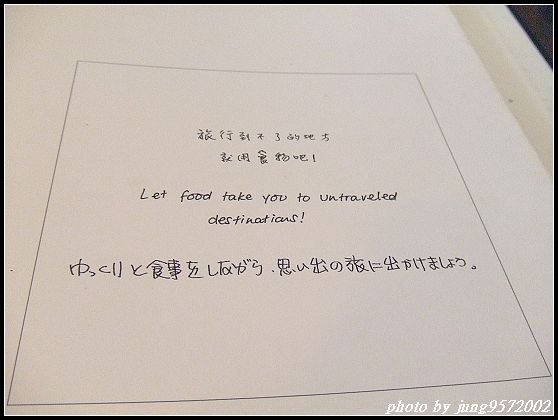 旅行到不了的地方
就用食物吧!
Let food take you to untraveled
destinations!
ゆっくりと食事をしながら、思い出の旅に出かけましょう。
photo by jung9572002